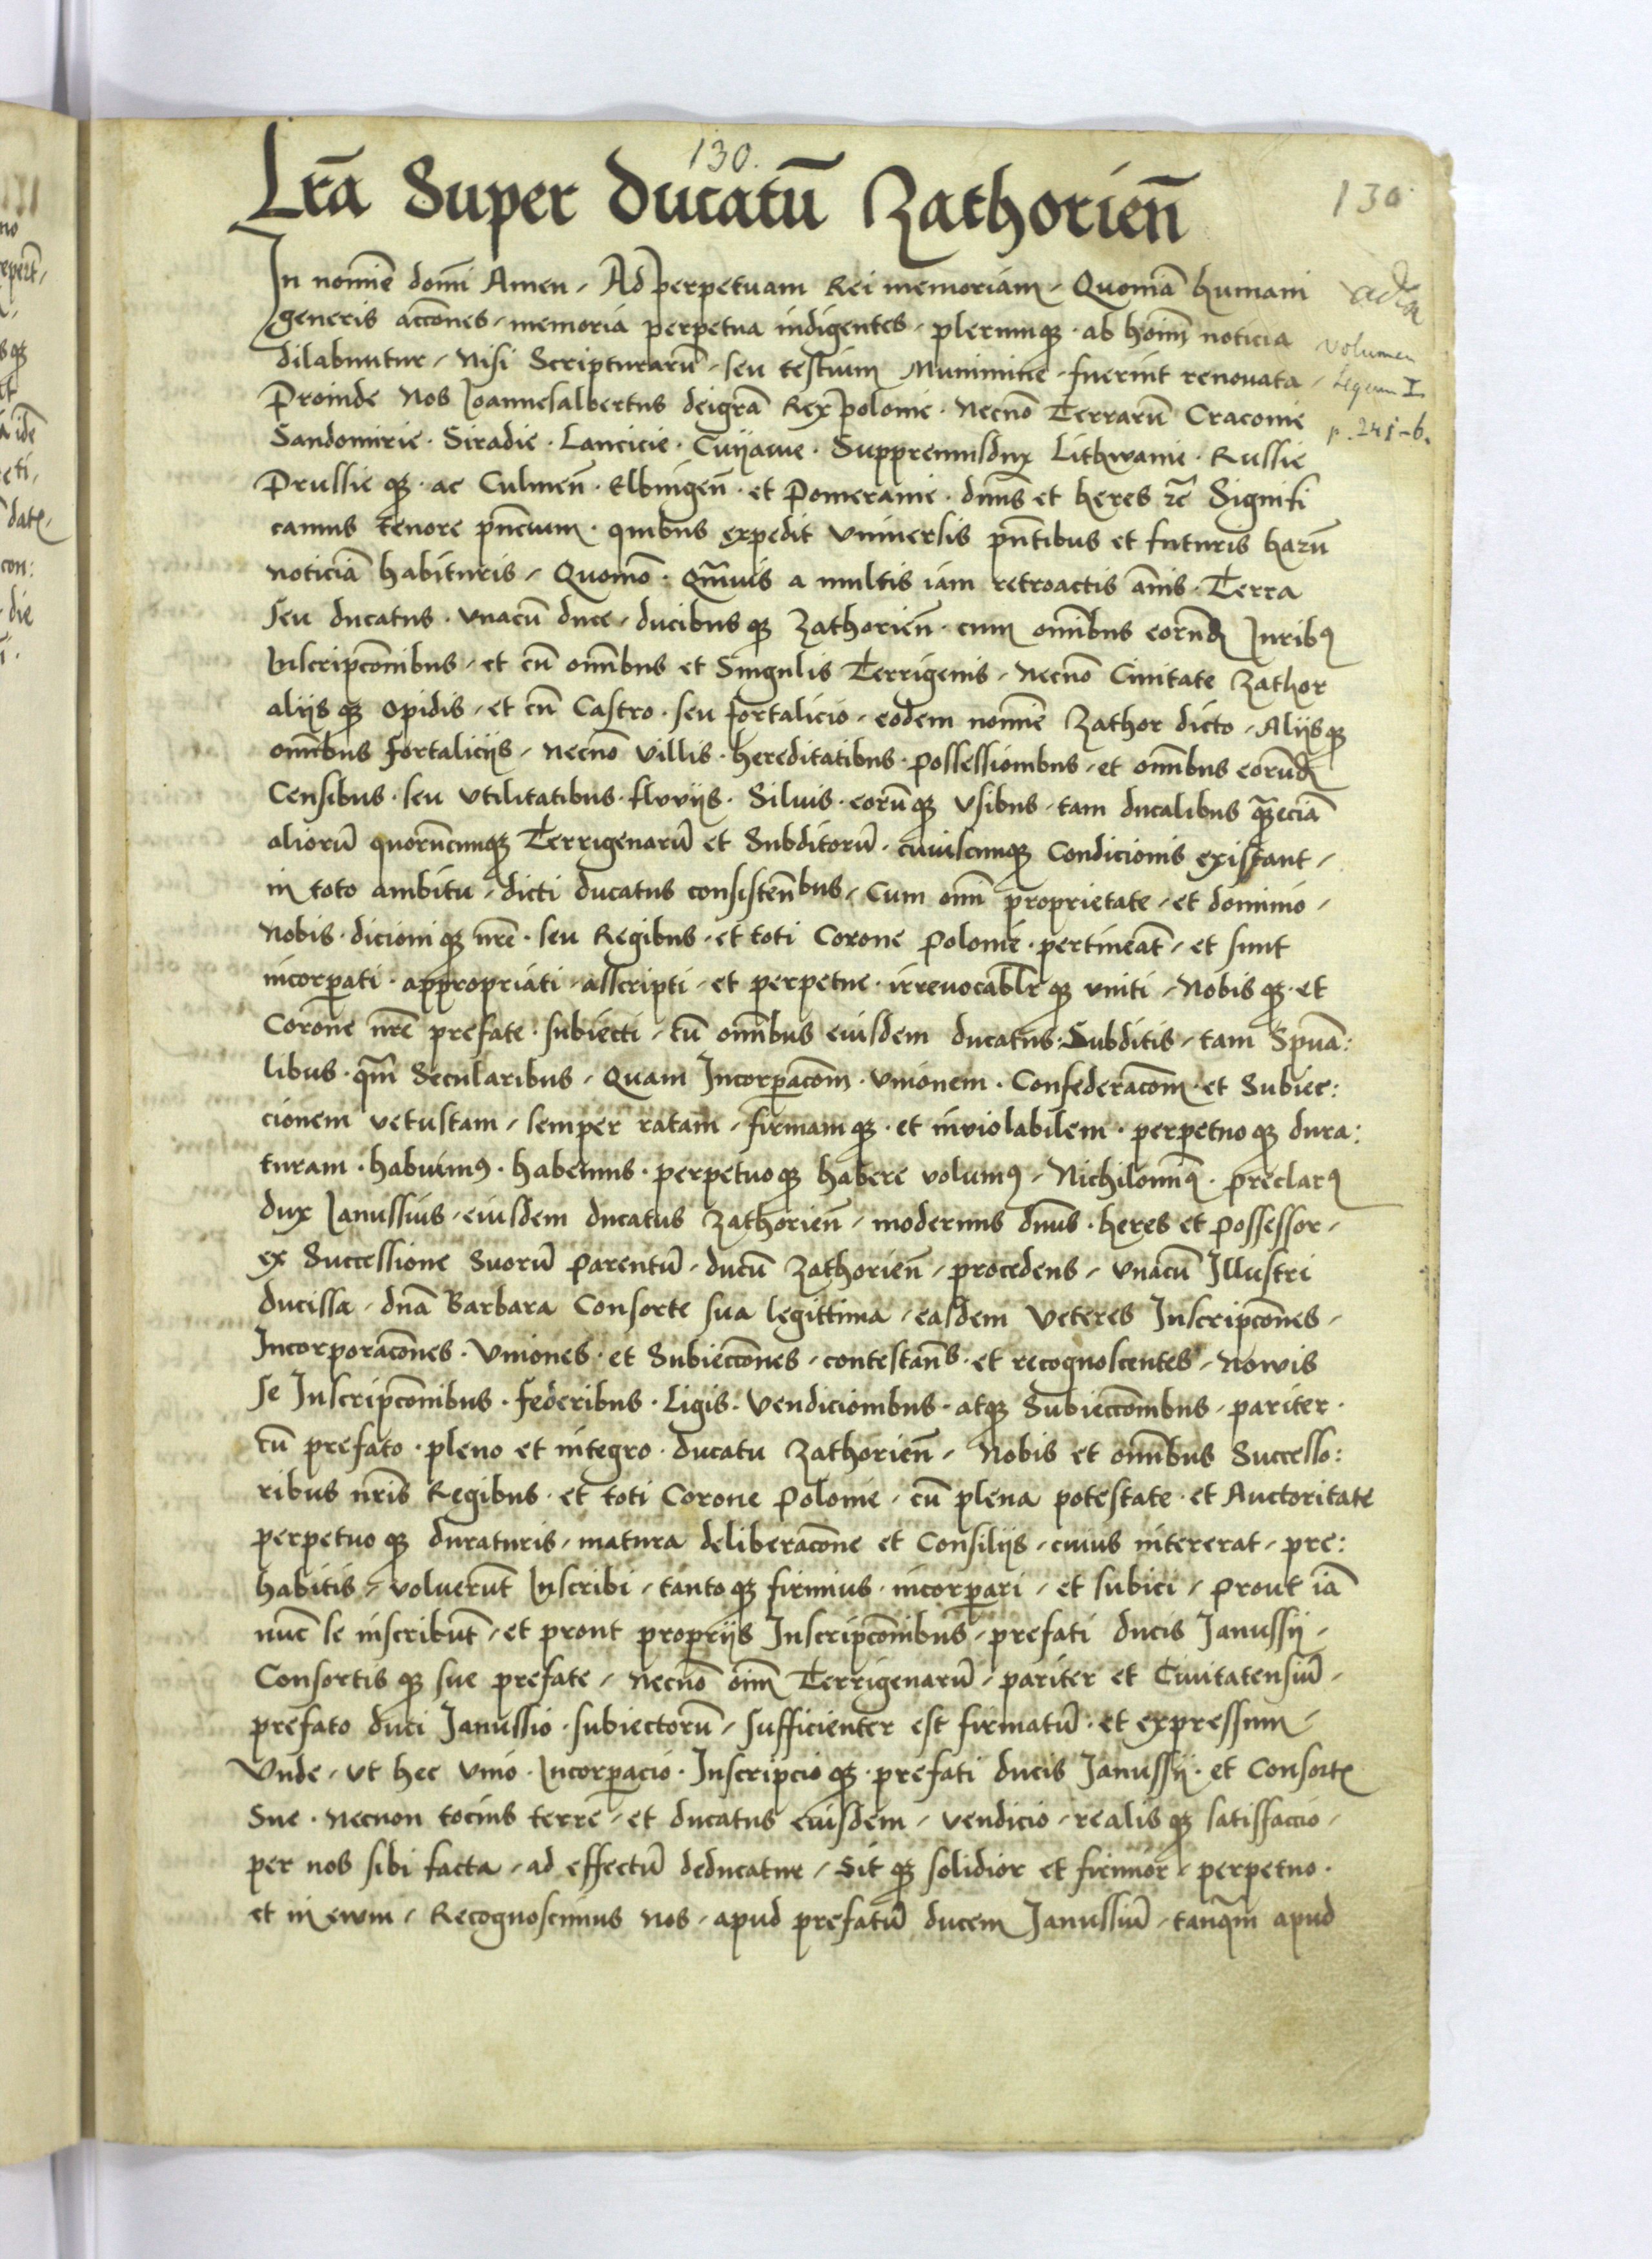 130.
130
Lrã Super ducatũ Zathorieñ
In nomiē domi Amen / Ad perpetuam Rei memoriam / Quoniã humani
generis accōnes / memoria perpetua indigentes / plerumqꝫ · ab hoim̄ noticia
dilabuntur / Nisi Scripturarũ / seu testium Munimine / fuerint renouata /
volumen
Legum I
p. 241-6.
Proinde Nos Joannesalbertus deigrã Rex polonie · Necnō Terrarũ Cracouie
Sandomirie · Siradie · Lancicie · Cuijauie · Suppremusdux Lithwanie · Russie
Prussie qꝫ · ac Culmeñ · Elbingeñ · et Pomeranie · dnūs et heres rc̃ Signifi
camus tenore pñcium · quibus expedit vniuersis pñtibus et futuris harũ
noticiã habituris / Quomō · Qm̄uis a multis iam retroactis añis · Terra
seu ducatus · vnacũ duce / ducibus qꝫ Zathorieñ · cum om̄ibus eorūdꝫ Juribꝰ
Inscripcōnibus / et cũ om̄ibus et Singulis Terrigenis / Necnō Ciuitate Zathor
alijs qꝫ opidis / et cũ Castro · seu fortalicio / eodem nomiē Zathor dicto / Alijs qꝫ
om̄ibus fortalicijs / necnō villis · hereditatibus · possessionibus / et om̄ibus eorũdꝫ
Censibus · seu vtilitatibus · fluvijs · Siluis · eorũ qꝫ vsibus / tam ducalibus qꝫ eciã
aliorũ quorũcumqꝫ Terrigenarũ et Subditorũ · cuiuscumqꝫ Condicionis existant /
in toto ambitu / dicti ducatus consisteñbus / Cum om̄i proprietate / et dominio /
Nobis · dicioni qꝫ nr̄e · seu Regibus / et toti Corone Polonie · pertineãt / et sunt
incorpati · appropriati / asscripti / et perpetue · irreuocablr qꝫ vniti / Nobis qꝫ · et
Corone nr̄e prefate · subiecti / cũ om̄ibus eiusdem ducatus · Subditis / tam Spuã:
libus · qm̄ Secularibus / Quam Incorpacōm · vnionem · Confederacōm · et Subiec:
cionem vetustam / semper ratam / firmam qꝫ · et inviolabilem · perpetuo qꝫ dura:
turam · habuimꝰ · habemus · perpetuo qꝫ habere volumꝰ / Nichilominꝰ · preclarꝰ
dux Janussius / eiusdem ducatus Zathorieñ / modernus dnūs · heres et possessor /
ex Successione Suorũ Parentũ / ducũ Zathorieñ / procedens / vnacũ Illustri
ducissa / dnã Barbara Consorte sua legittima / easdem Veteres Inscripcōnes /
Incorporacōnes · Vniones · et Subieccōnes / contestañs · et recognoscentes / Nowis
se Inscripcōnibus · federibus · Ligis · Vendicionibus · atqꝫ Subieccōnibus / pariter ·
cũ prefato · pleno et integro · ducatu Zathorieñ / Nobis et om̄ibus Successo:
ribus nr̄is Regibus · et toti Corone Polonie / cũ plena potestate · et Auctoritate
perpetuo qꝫ duraturis / matura deliberacōne et Consilijs / cuius intererat / pre:
habitis / voluerũt Inscribi / tanto qꝫ firmius · incorpari / et subici / prout iã
nũc se inscribũt / et prout proprijs Inscripcōnibus / prefati ducis Janussij /
Consortis qꝫ sue prefate / necnō oim̄ Terrigenarũ / pariter et Ciuitatensiũ /
prefato duci Janussio · subiectorũ / sufficienter est firmatũ · et expressum /
Vnde / vt hec vnio · Incorpacio · Inscripcio qꝫ · prefati ducis Janussij · et Consort̃
Sue · necnon tocius terre / et ducatus eiusdem / vendicio / realis qꝫ satisfaccio /
per nos sibi facta / ad effectũ deducatur / Sit qꝫ solidior et firmior / perpetuo ·
et in ewm / Recognoscimus Nos / apud prefatũ ducem Janussiũ / tanqm̄ apud